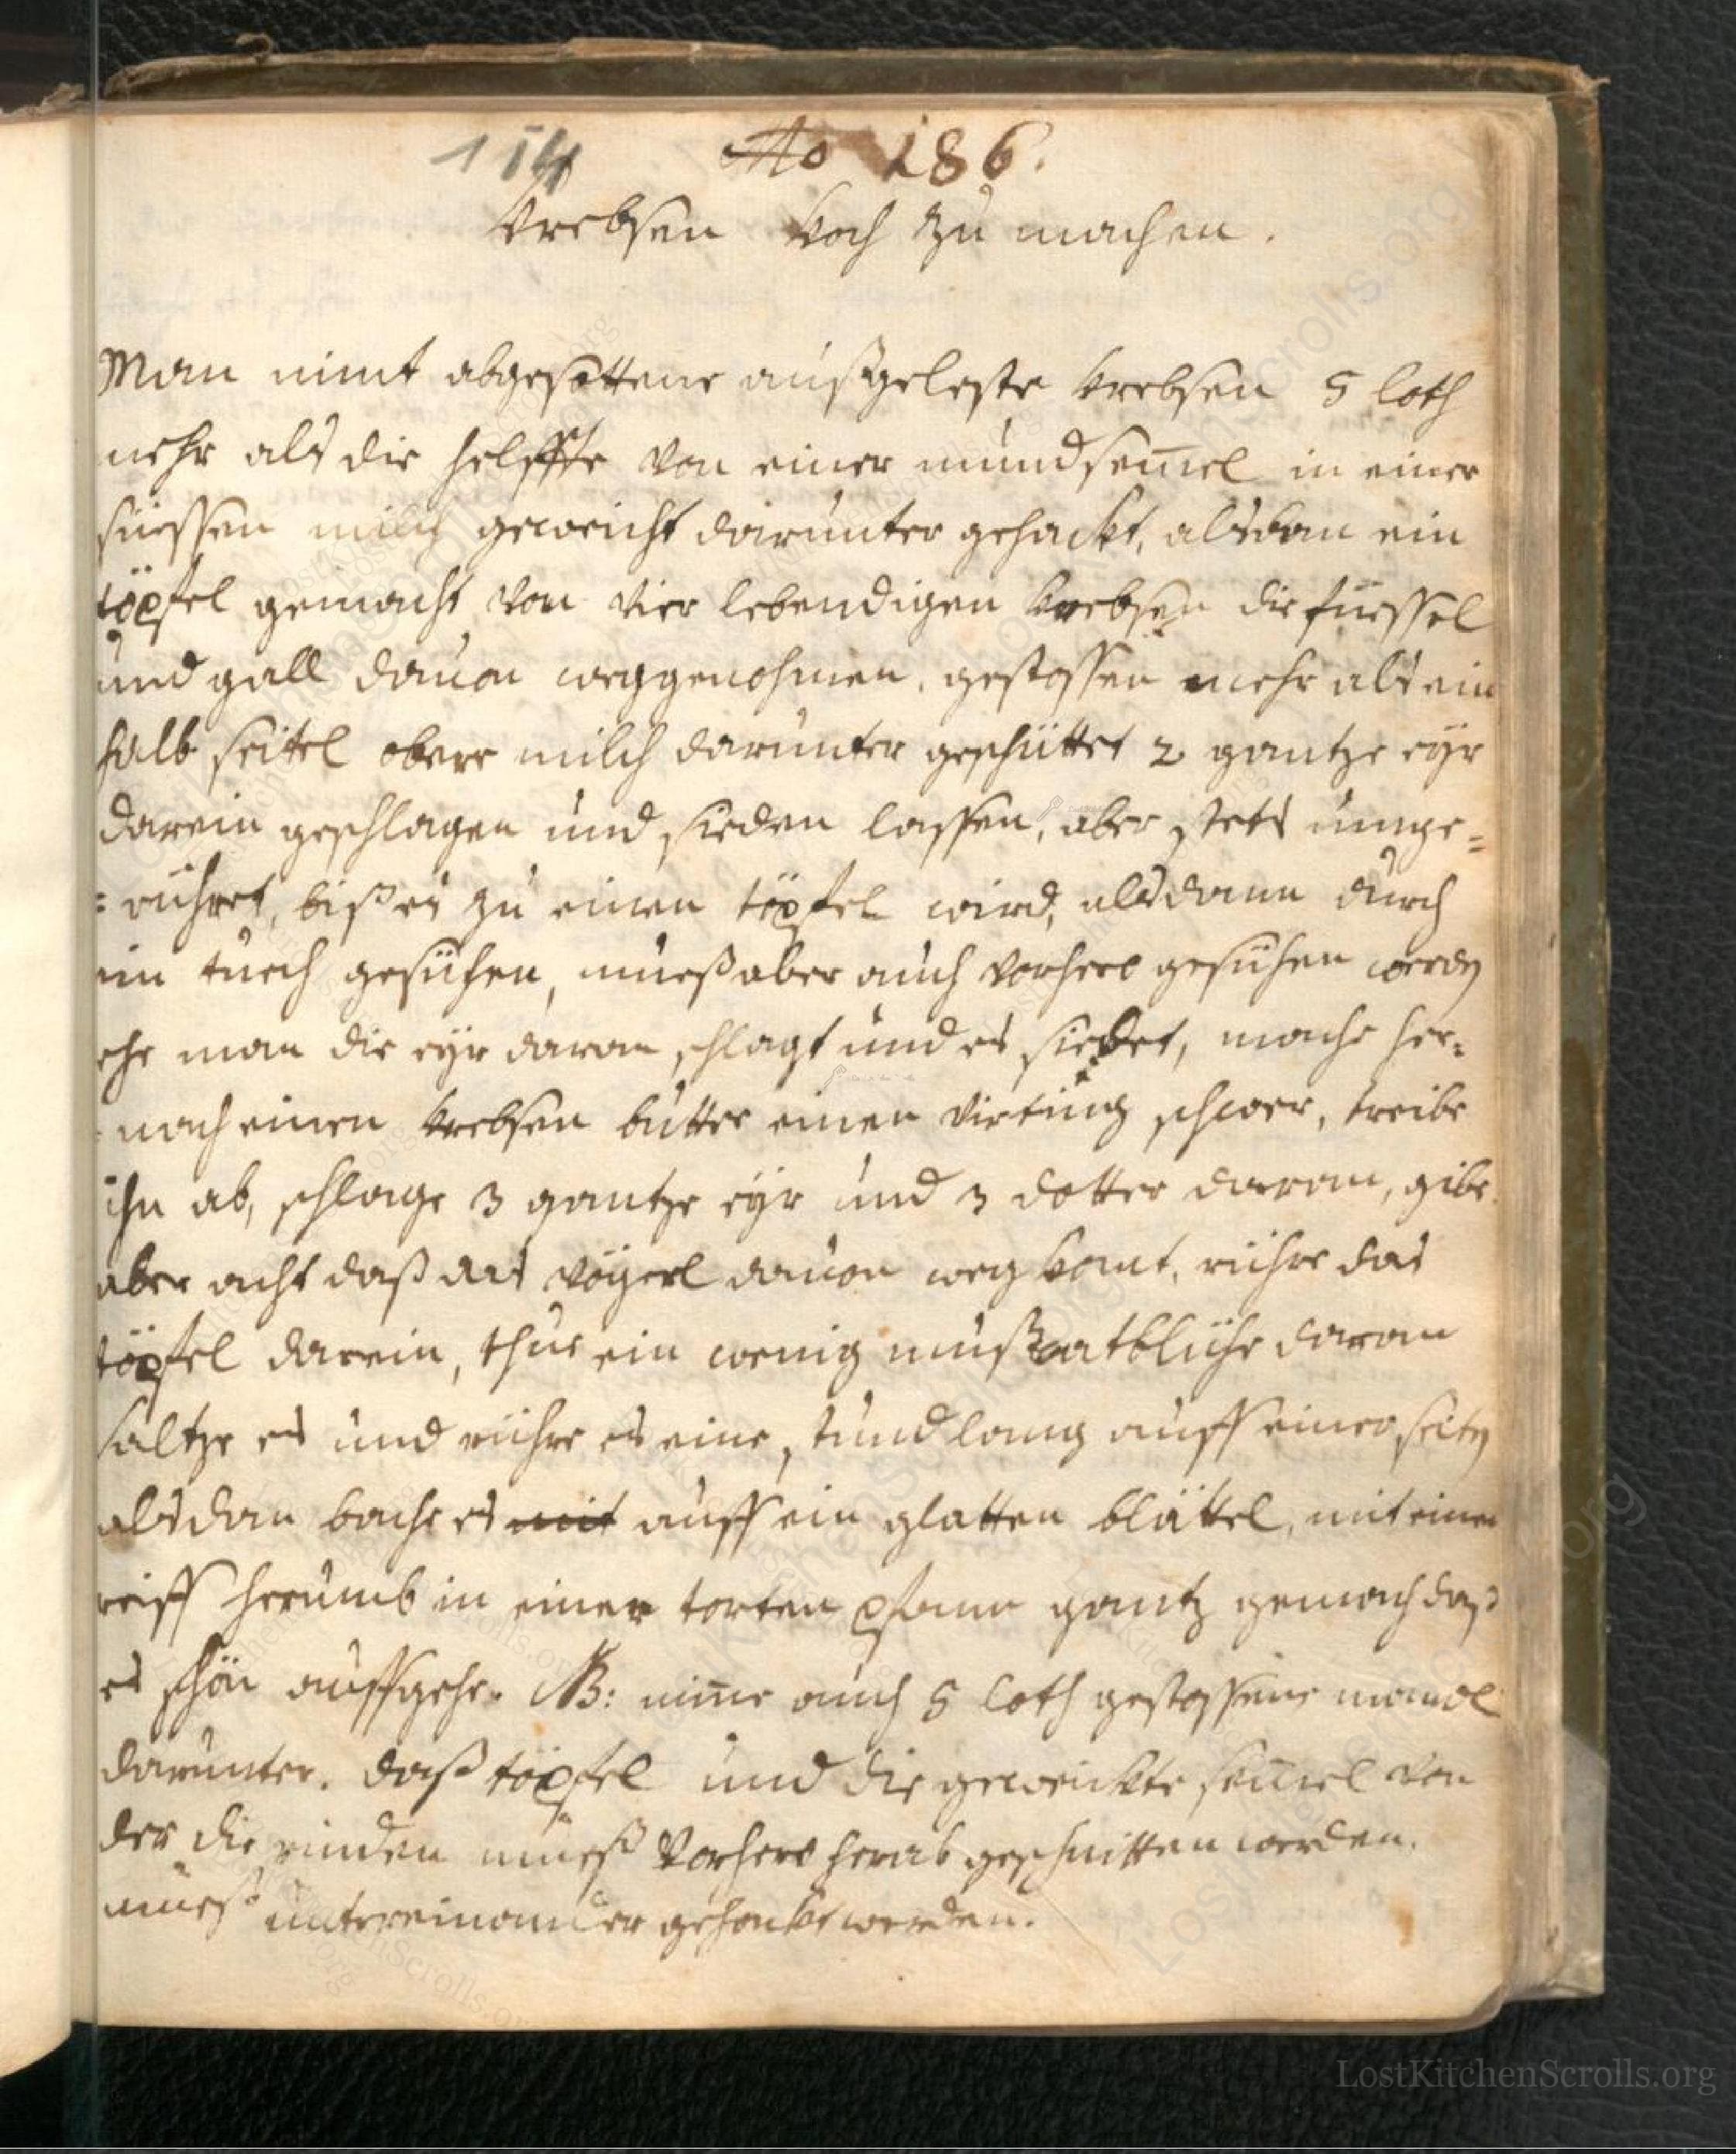 154 No 186.
Krebsen Koch zu machen.
Man nimt abgesottene außgeleste krebsen 5 loth
mehr als die helffte von einer mundsem̄el in einer
süessen milch geweicht darunter gehackt, alsdan ein
töpfel gemacht von vier lebendigen krebsen die füessel
und gall dauon weggenohmen, gestossen mehr als ein
halb seitel obere milch darunter geschüttet 2 gantze eÿr
darein geschlagen und sieden lassen, aber stets umge=
=rühret, biß es zu einen töpfel wird, alsdann durch
ein tuech gesühen, mueß aber auch vorhero gesühen werden
ehe man die eÿr daran schlagt und es siedet, mache her=
=nach einen krebsen butter einen virtung schwer, treibe
ihn ab, schlage 3 gantze eÿr und 3 dotter daran, gibe
aber acht daß das vögerl dauon weg komt, rühre das
töpfel darein, thue ein wenig mußcatblühe daran
saltze es und rühre es eine stund lang auff einer seiten
alsdan bache es mit auff ein glatten blättel, mit einen
reiff herumb in einer torten pfann gantz gemach daß
es schön auffgehe. NB: nim̄e auch 5 loth gestossene mandl
darunter. daß töpfel und die geweickte sem̄el von
der die rinden mueß vorhero herab geschnitten werden.
mueß untereinander gehackt werden.
LostKitchenScrolls.org